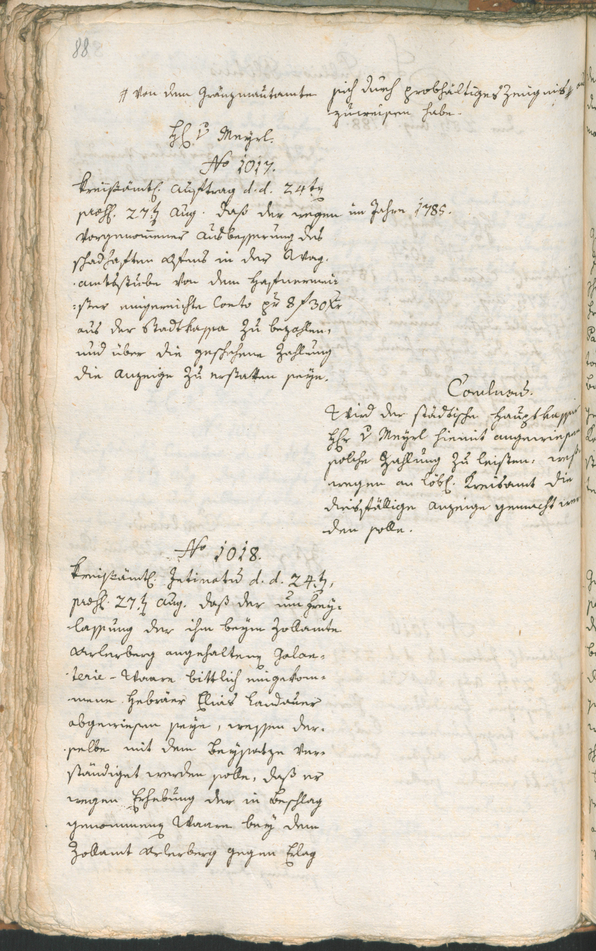 88.
von dem Gränzmautamte sich durch probhältiges Zeugniß
zuweisen habe.
H. v Meyrl.
No 1017.
Kreisämtl. Auftrag d. d. 24ten
praes. 27ten Aug. daß der wegen im Jahre 1785.
vorgenommener Ausbesserung des
schadhaften Ofens in der
amtsstube von dem Hafnermei-
:ster eingereichte Conto pr 8 f 30 Xr
aus der Stadtkassa zu bezahlen,
und über die geschehene Zahlung
die Anzeige zu erstatten seye.
Conclusum.
Wird der städtische Hauptkassier
Hr v Meyrl hiemit angewiesen
solche Zahlung zu leisten, wes-
wegen an Löbl. Kreisamt die
diesfällige Anzeige gemacht wer
den solle.
No 1018.
Kreisämtl. Intimatum d. d. 24ten,
praes. 27ten Aug. daß der um Frey-
lassung der ihm beym Zollamte
Arlerberg angehaltenen Galan-
terie-Waare bittlich eingekom-
mene Hebräer Elias Landauer
abgewiesen seye, wessen der-
selbe mit dem Beysatze ver-
ständiget werden solle, daß er
wegen Erhebung der in Beschlag
genommenen Waare bey dem
Zollamt Arlerberg gegen Erlag